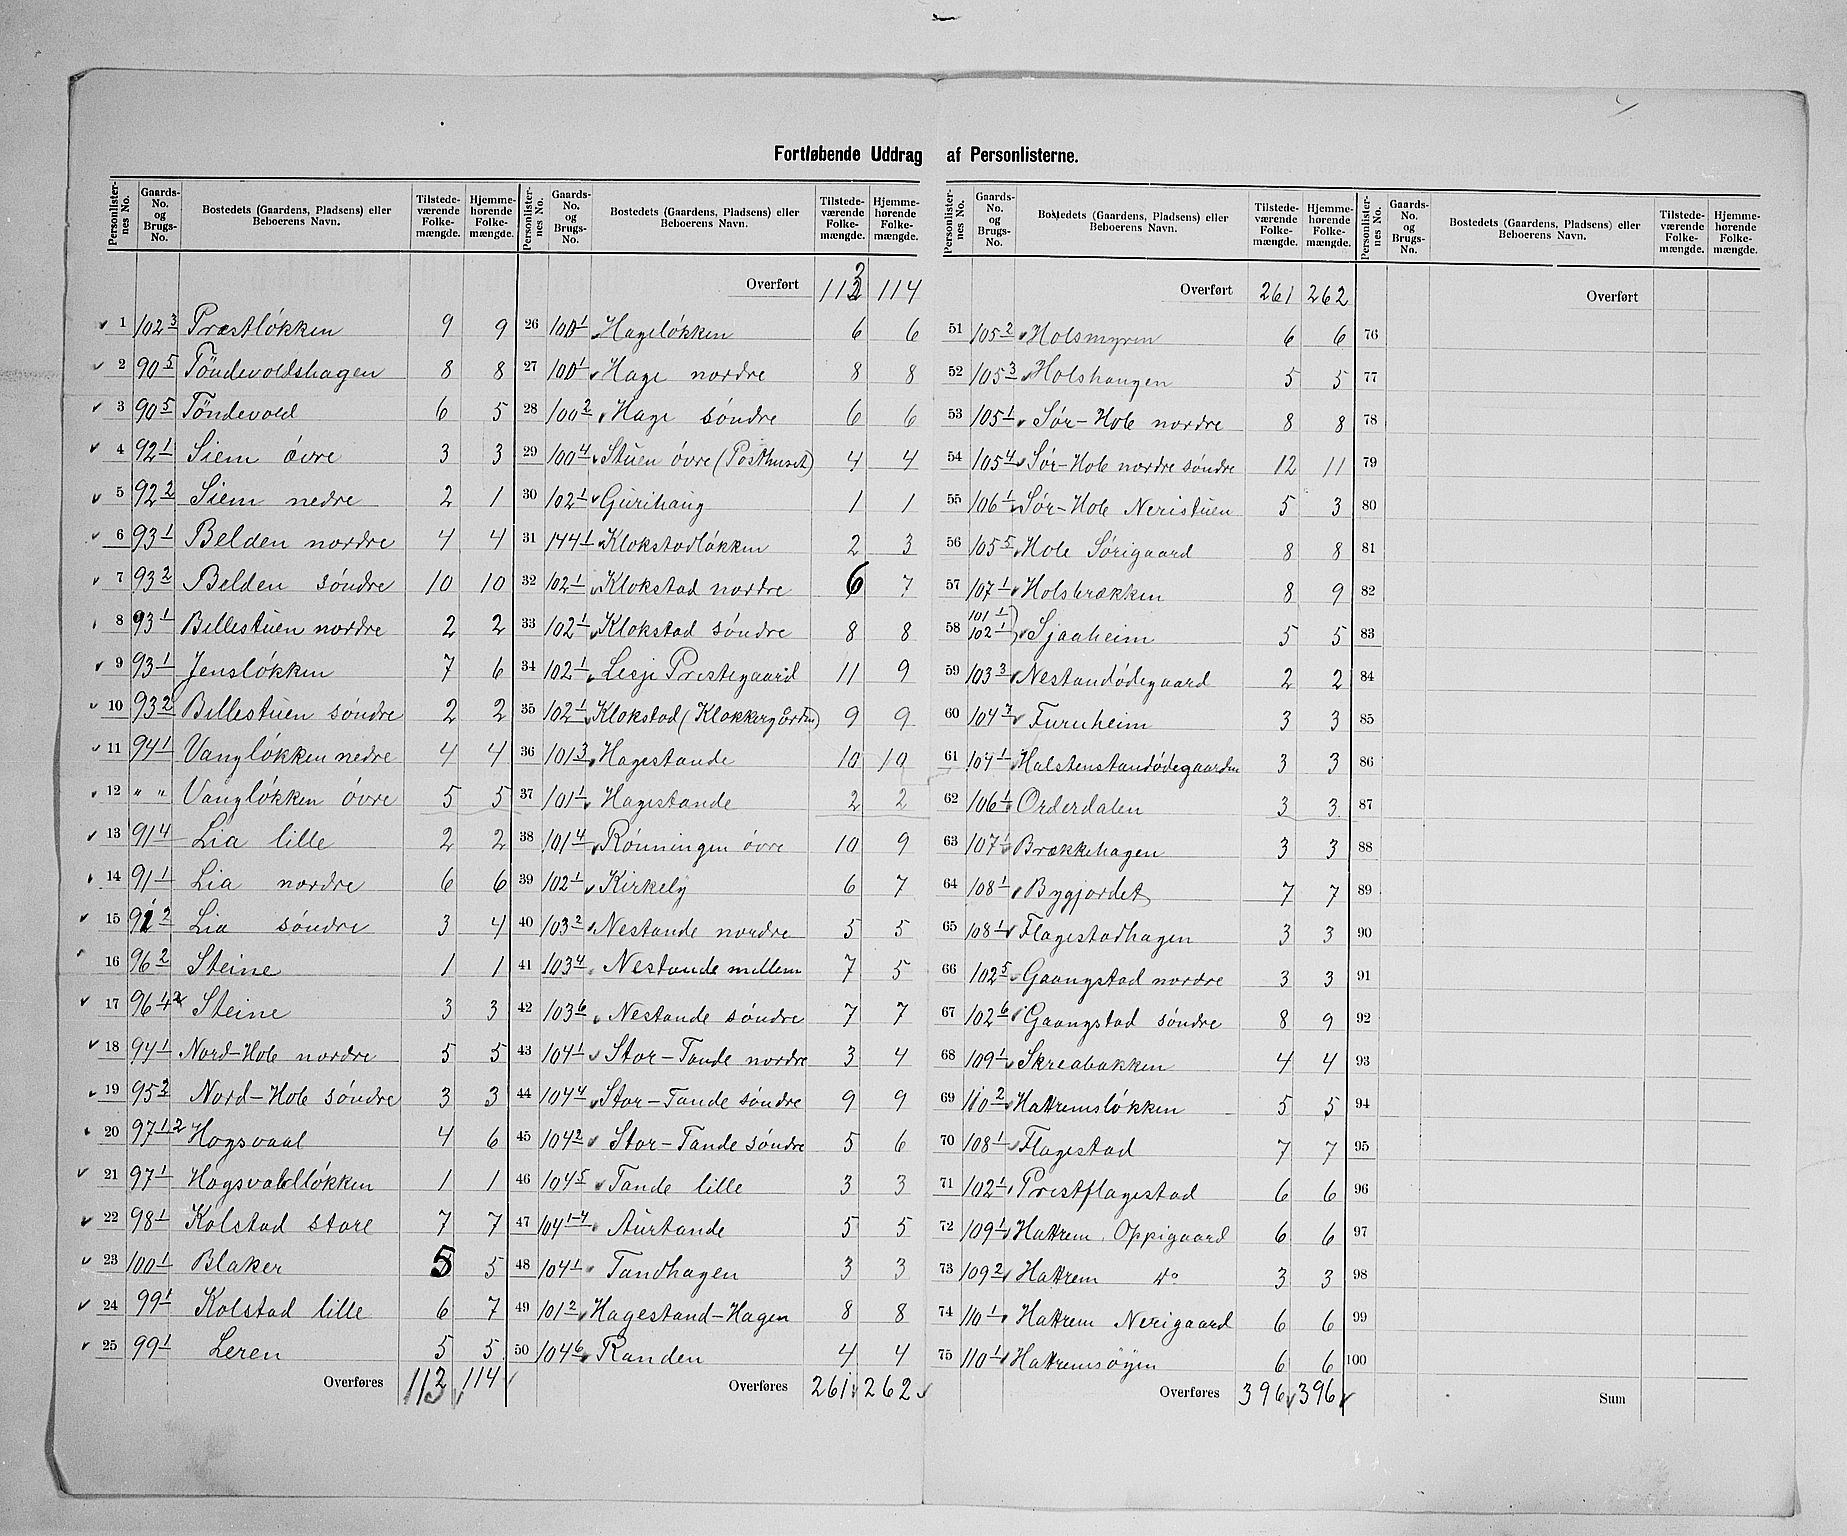 Fortløbende Uddrag af Personlisterne.
Personlister-nes No. Gaards-No. og Brugs-No. Bostedets (Gaardens, Pladsens) eller Beboerens Navn. Tilstede-værende Folke-mængde. Hjemme-hørende Folke-mængde.
1 102 3 Præstløkken 9 9
2 90 5 Töndevoldshagen 8 8
3 90 5 Töndevold 6 5
4 92 1 Siem övre 3 3
5 92 2 Siem nedre 2 1
6 93 1 Belden nordre 4 4
7 93 2 Belden søndre 10 10
8 93 1 Billestuen nordre 2 2
9 93 1 Jensløkken 7 6
10 93 2 Billestuen søndre 2 2
11 94 1 Vangløkken nedre 4 4
12 " " Vangløkken övre 5 5
13 91 4 Lia lille 2 2
14 91 1 Lia nordre 6 6
15 91 2 Lia søndre 3 4
16 96 2 Steine 1 1
17 96 1,2 Steine 3 3
18 94 1 Nord-Hole nordre 5 5
19 95 2 Nord-Hole søndre 3 3
20 97 1,2 Hogsvaal 4 6
21 97 1 Hogsvaldløkken 1 1
22 98 1 Kolstad store 7 7
23 100 1 Blaker 5 5
24 99 1 Kolstad lille 6 7
25 99 1 Leren 5 5
Overføres 113 114
Personlister-nes No. Gaards-No. og Brugs-No. Bostedets (Gaardens, Pladsens) eller Beboerens Navn. Tilstede-værende Folke-mængde. Hjemme-hørende Folke-mængde.
Overført 113 114
26 100 1 Hageløkken 6 6
27 100 1 Hage nordre 8 8
28 100 2 Hage søndre 6 6
29 100 4 Stuen övre (Posthuset) 4 4
30 102 1 Gurihaug 1 1
31 144 1 Klokstadløkken 2 3
32 102 1 Klokstad nordre 6 7
33 102 1 Klokstad søndre 8 8
34 102 1 Lesje Prestegaard 11 9
35 102 1 Klokstad (Klokkerg) 9 9
36 101 3 Hagestande 10 10
37 101 1 Hagestande 2 2
38 101 4 Rønningen övre 10 9
39 102 1 Kirkely 6 7
40 103 2 Nestande nordre 5 5
41 103 4 Nestande mellem 7 5
42 103 6 Nestande søndre 7 7
43 104 1 Stor-Tande nordre 3 4
44 104 4 Stor-Tande søndre 9 9
45 104 2 Stor-Tande søndre 5 6
46 104 5 Tande lille 3 3
47 104 1-4 Aurtande 5 5
48 104 1 Tandhagen 3 3
49 101 2 Hagestand-Hagen 8 8
50 104 6 Randen 4 4
Overføres 261 262
Personlister-nes No. Gaards-No. og Brugs-No. Bostedets (Gaardens, Pladsens) eller Beboerens Navn. Tilstede-værende Folke-mængde. Hjemme-hørende Folke-mængde.
Overført 261 262
51 105 2 Holsmyren 6 6
52 105 3 Holshaugen 5 5
53 105 1 Sør-Hole nordre 8 8
54 105 4 Sør-Hole nordre søndre 12 11
55 106 1 Sør-Hole Neristuen 5 3
56 105 5 Hole Sørigaard 8 8
57 107 1 Holsbrækken 8 9
58 101 1 102 1 Sjaaheim 5 5
59 103 3 Nestandødegaard 2 2
60 104 3 Furuheim 3 3
61 104 1 Halstenstandødegaarden 3 3
62 106 1 Orderdalen 3 3
63 107 1 Brækkehagen 3 3
64 108 1 Bygjordet 7 7
65 108 1 Flagestadhagen 3 3
66 102 5 Gaangstad nordre 3 3
67 102 6 Gaangstad søndre 8 9
68 109 1 Skreabakken 4 4
69 110 2 Hattremsløkken 5 5
70 108 1 Flagestad 7 7
71 102 1 Prestflagestad 6 6
72 109 1 Hattrem Oppigaard 6 6
73 109 2 Hattrem do 3 3
74 110 1 Hattrem Nerigaard 6 6
75 110 1 Hattremsøyen 6 6
Overføres 396 396
Personlister-nes No. Gaards-No. og Brugs-No. Bostedets (Gaardens, Pladsens) eller Beboerens Navn. Tilstede-værende Folke-mængde. Hjemme-hørende Folke-mængde.
Overført
76
77
78
79
80
81
82
83
84
85
86
87
88
89
90
91
92
93
94
95
96
97
98
99
100
Sum